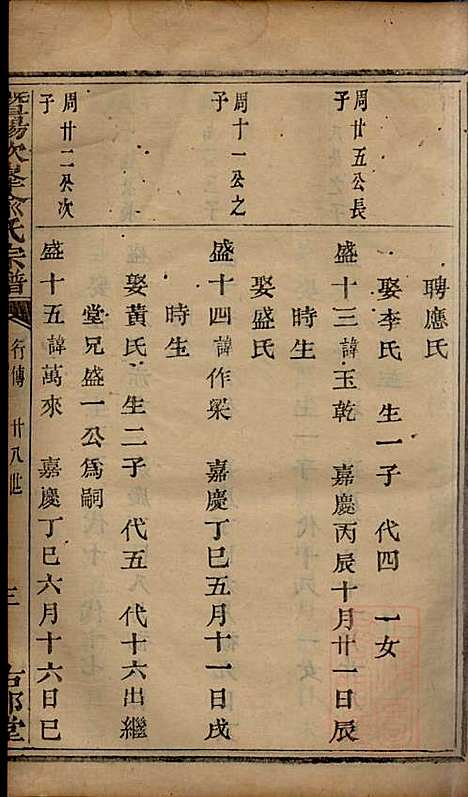 聘應氏
娶李氏 生一子 代四 一女
周廿五公長子
盛十三諱玉乾 嘉慶丙辰十月廿一日辰時生
娶盛氏
周十一公之子
盛十四諱作梁 嘉慶丁巳五月十一日戌時生
娶黃氏 生二子 代五 代十六出繼堂兄盛一公爲嗣
周廿二公次子
盛十五諱萬來 嘉慶丁巳六月十六日巳
暨陽次峯俞氏宗譜 行傳 廿八世 三